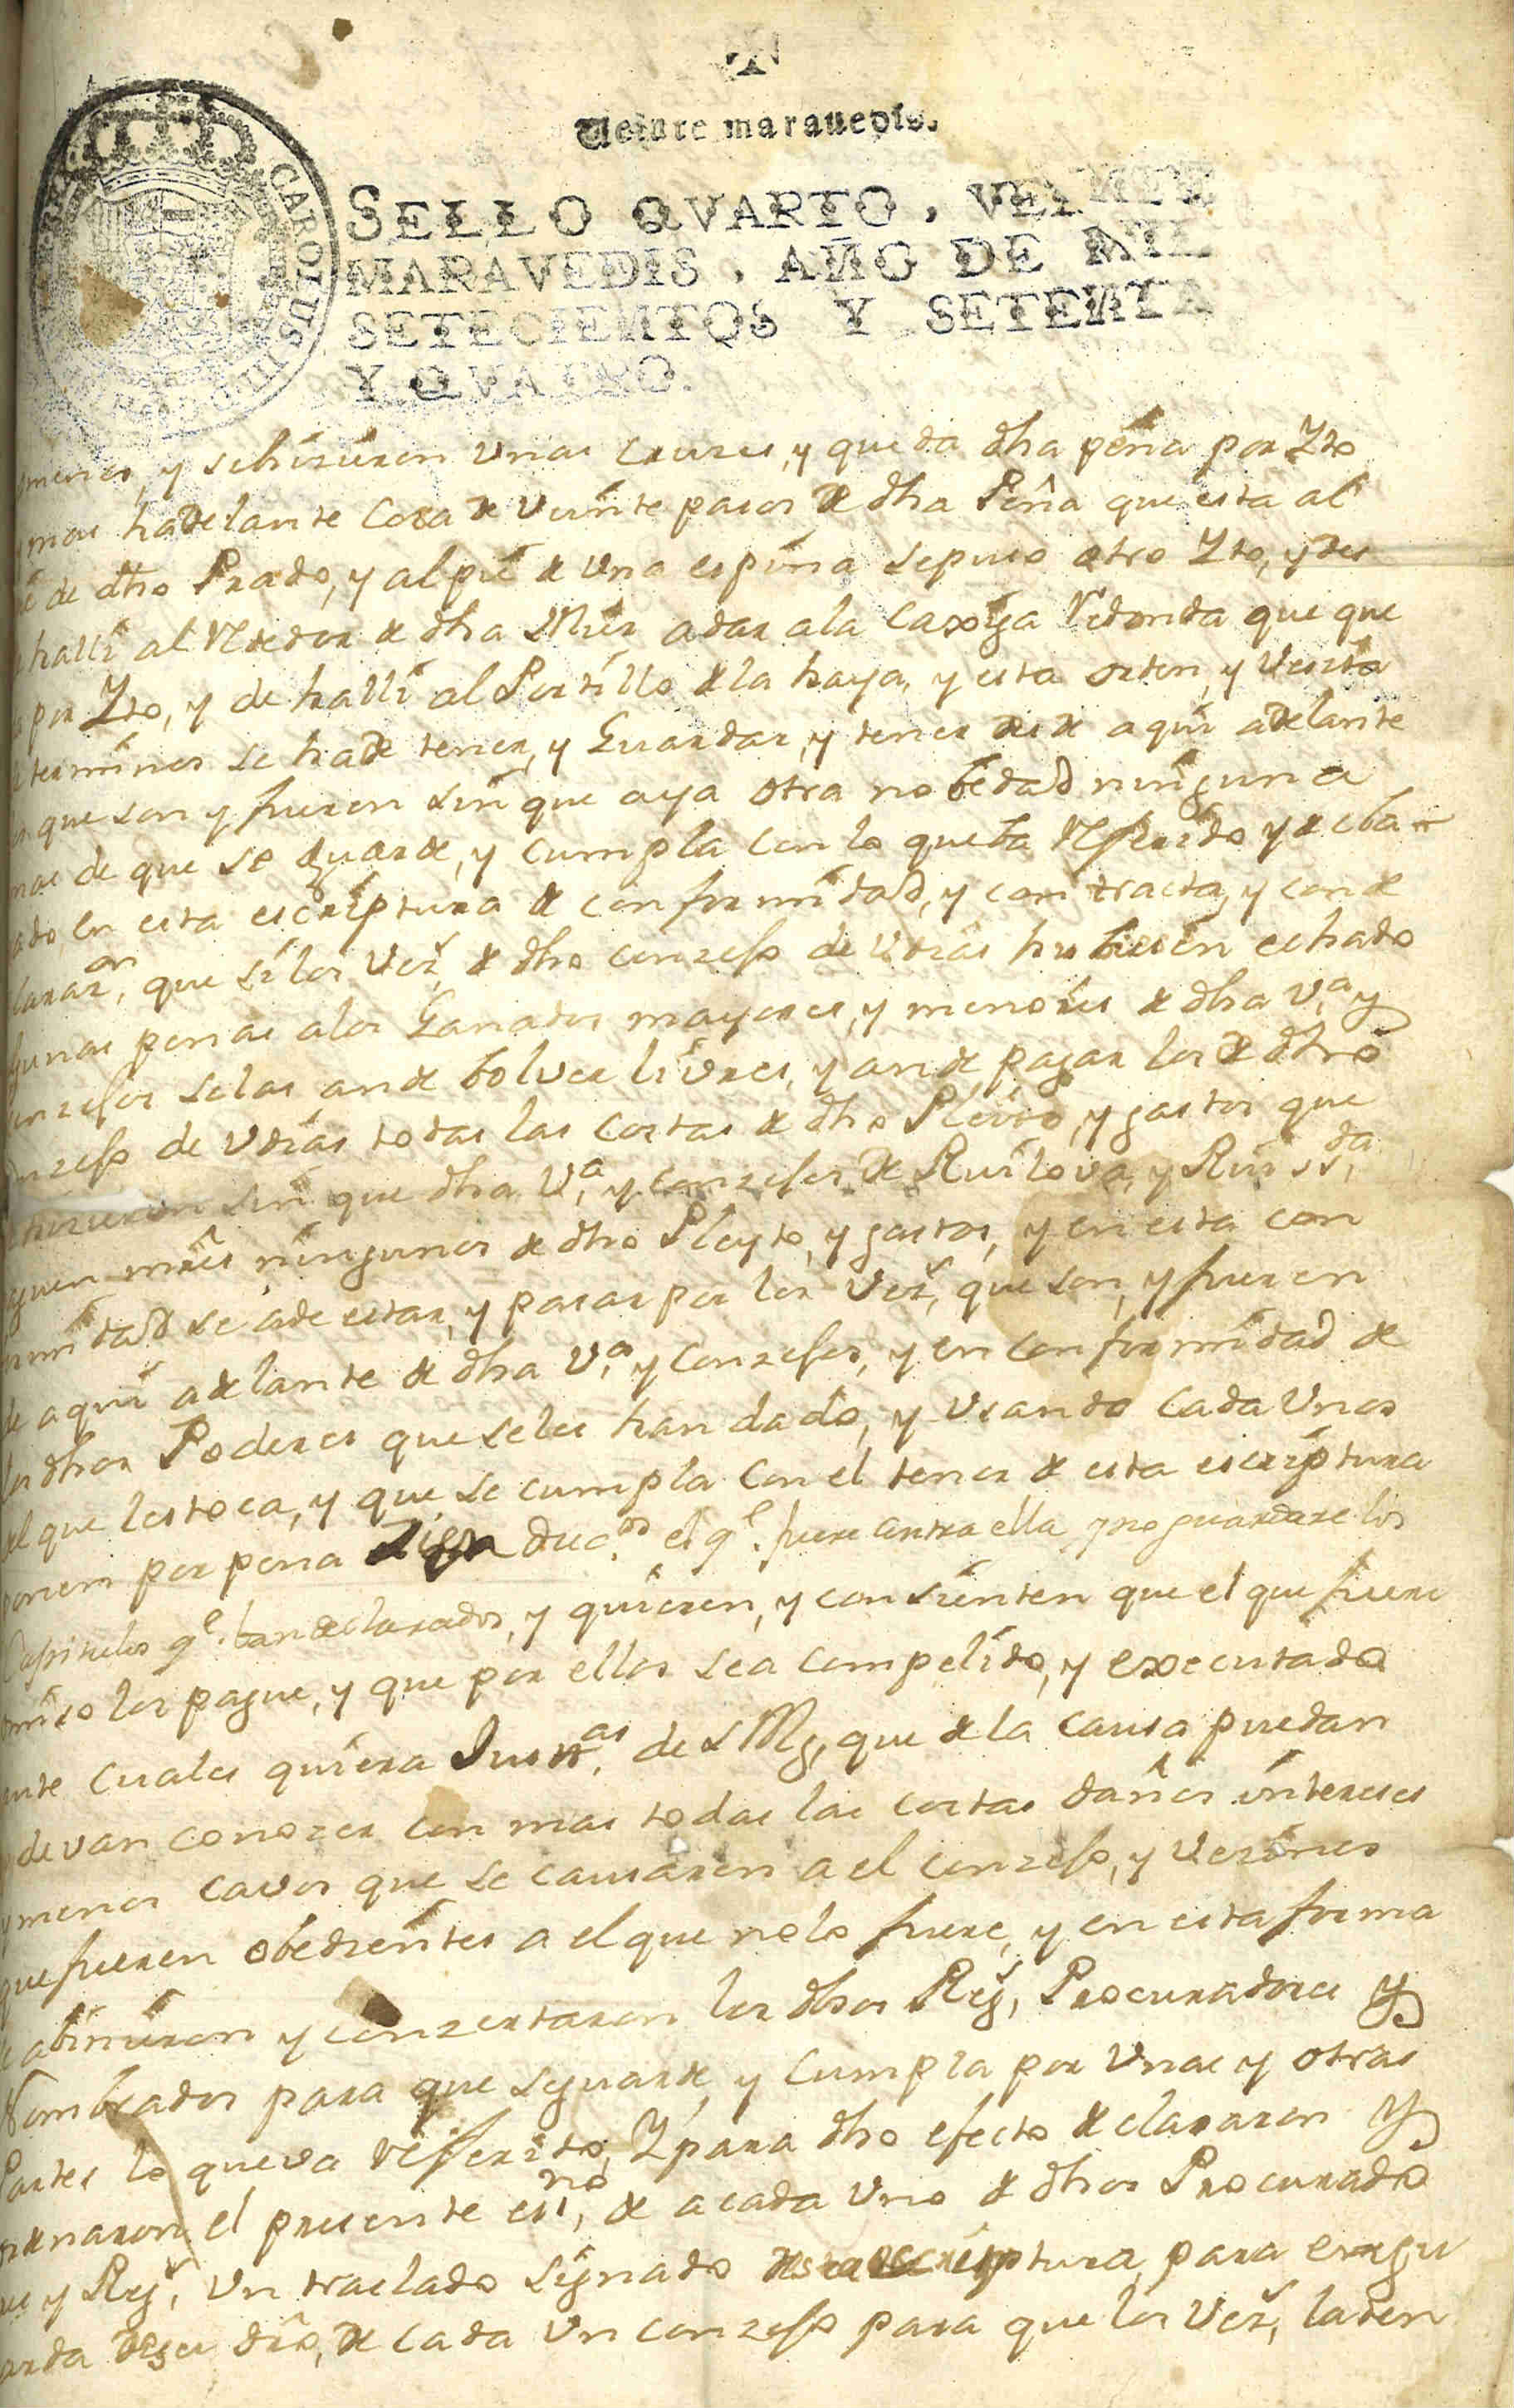 Veinte marauedis.
CAROLUS III D G
SELLO QVARTO, VEINTE
MARAVEDIS, AÑO DE MIL
SETECIENTOS Y SETENTA
Y QVATRO.
y sehizieren unas Cruzes, y queda dha peña por Yto
mas hadelante Cosa de veinte pasos de dha Peña que esta al
de dho Prado, y al pie de una espina sepuso otro Yto, y des
halli al Rededor de dha Mier adar ala Caxiga Redonda que que
por Yto, y de halli al Portillo de la haya, y esta orden, y
terminos se hade tener, y Guardar, y tener desde aqui adelante
que son y fueren sin que aya otra nobedad ninguna
mas de que se guarde, y cumpla con lo queba Referido y decla
ado en esta escriptura de conformidad, y contracta, y con de
laraz.on, que si los Vez.s de dho conzejo de Udias hubiesen echado
gunas penas alos Ganados mayores, y menores de dha V.a y
onzejos selas ande bolver livres, y ande pagar los de dho
onzejo de Udias todas las Costas de dho Pleito, y gastos que
hizieron sin que dha V.a y Conzejos de Ruilova, y Ruis.da
aguen mrs ningunos de dho Pleyto, y gastos, y en esta con
ormidad se ade estar, y pasar por los Vez.s que son, y fueren
de aqui adelante de dha V.a y Conzejos, y en conformidad de
los dhos Poderes que seles han dado, y usando Cada Unos
del que les toca, y que se cumpla con el tenor de esta escriptura
ponem por pena Zien duc.os el q.e fuere contra ella y no guardare los
Capitulos q.e ban declarados, y quieren, y consienten que el que fuere
omiso los pague, y que por ellos sea Compelido, y executado
ante Cuales quiera Just.as de S Mg. que de la Causa puedan
y devan conozer con mas todas las costas daños intereses
y menos cavos que se causaren a el conzejo, y Vezinos
que fueren obedientes a el que no lo fuere, y en esta forma
se abinieron y conzertaron los dhos Rej.s, Procuradores y
Nombrados para que seguarde, y Cumpla por Unas y otras
Partes lo queva Referido, Y para dho efecto declararon y
ordenaron el presente es.no, de a cada Uno de dhos Procurado
res y Rej.s, Un traslado Signado desta escriptura, para en
arda de su dro, de cada Un conzejo para que los Vez.s, laden